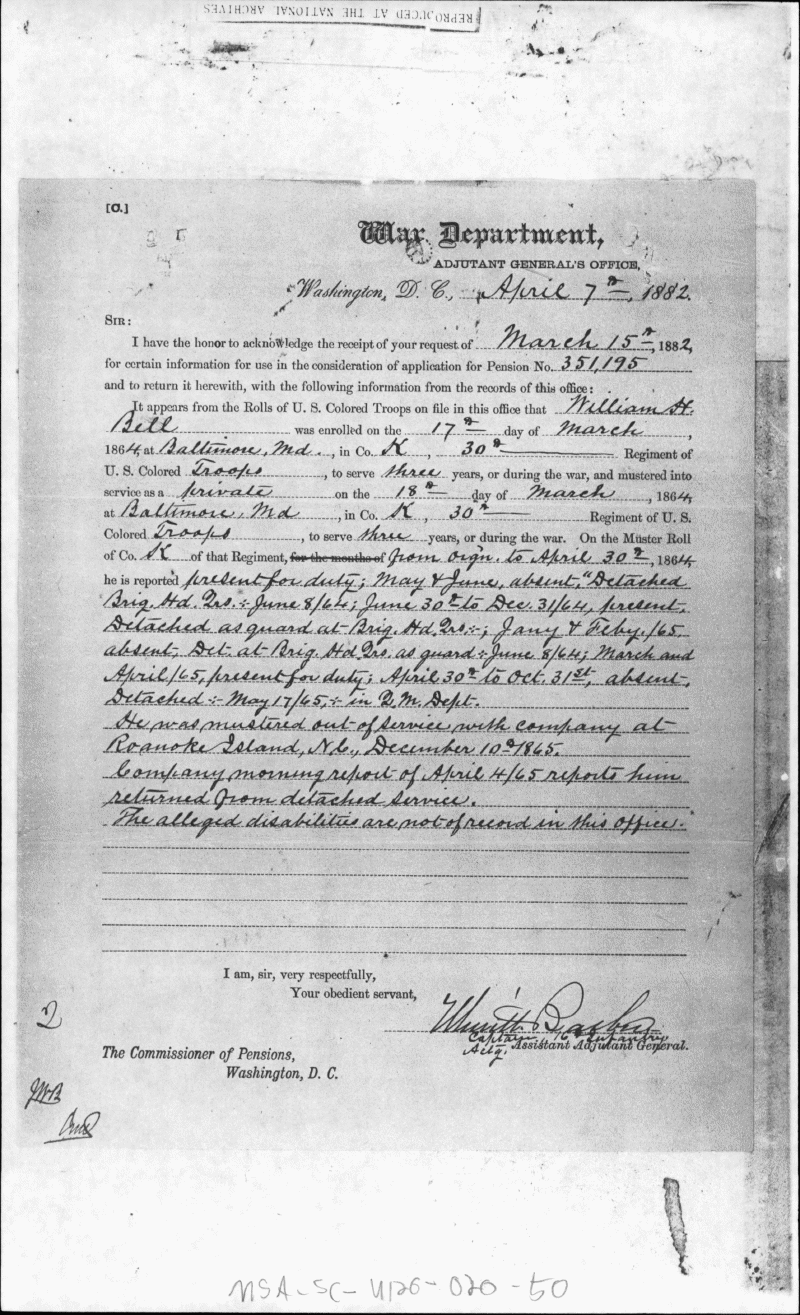 REPRODUCED AT THE NATIONAL ARCHIVES
[C.]
War Department,
ADJUTANT GENERAL'S OFFICE,
Washington, D. C., April 7th, 1882.
SIR:
I have the honor to acknowledge the receipt of your request of March 15th, 1882,
for certain information for use in the consideration of application for Pension No. 351,195
and to return it herewith, with the following information from the records of this office:
It appears from the Rolls of U. S. Colored Troops on file in this office that William H.
Bell was enrolled on the 17th day of March,
1864, at Baltimore, Md., in Co. K, 30th Regiment of
U. S. Colored Troops, to serve three years, or during the war, and mustered into
service as a private on the 18th day of March, 1864,
at Baltimore, Md, in Co. K, 30th Regiment of U. S.
Colored Troops, to serve three years, or during the war. On the Muster Roll
of Co. K of that Regiment, for the months of from orgn. to April 30th, 1864,
he is reported present for duty; May & June, absent, "Detached
Brig. Hd. Qrs. June 8/64; June 30th to Dec. 31/64, present,
Detached as guard at Brig. Hd. Qrs.; Jany & Feby. /65
absent, Det. at Brig. Hd. Qrs. as guard June 8/64; March and
April/65, present for duty; April 30th to Oct. 31st, absent,
Detached May 17/65, in Q. M. Dept.
He was mustered out of service with company at
Roanoke Island, N.C., December 10th 1865.
Company morning report of April 4/65 reports him
returned from detached service.
The alleged disabilities are not of record in this office.
I am, sir, very respectfully,
Your obedient servant,
Merritt Barber
Captain 16 Infantry
Actg. Assistant Adjutant General.
The Commissioner of Pensions,
Washington, D. C.
2
MSA-SC-4126-020-50